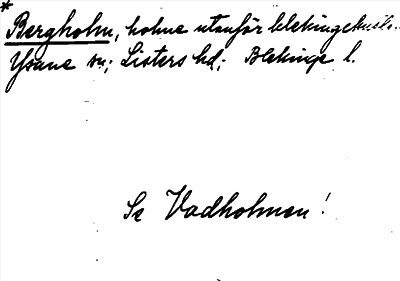 * Bergholm, holme utanför blekingekusten.
Ysane sn; Listers hd; Blekinge l.
Se Vadholmen!